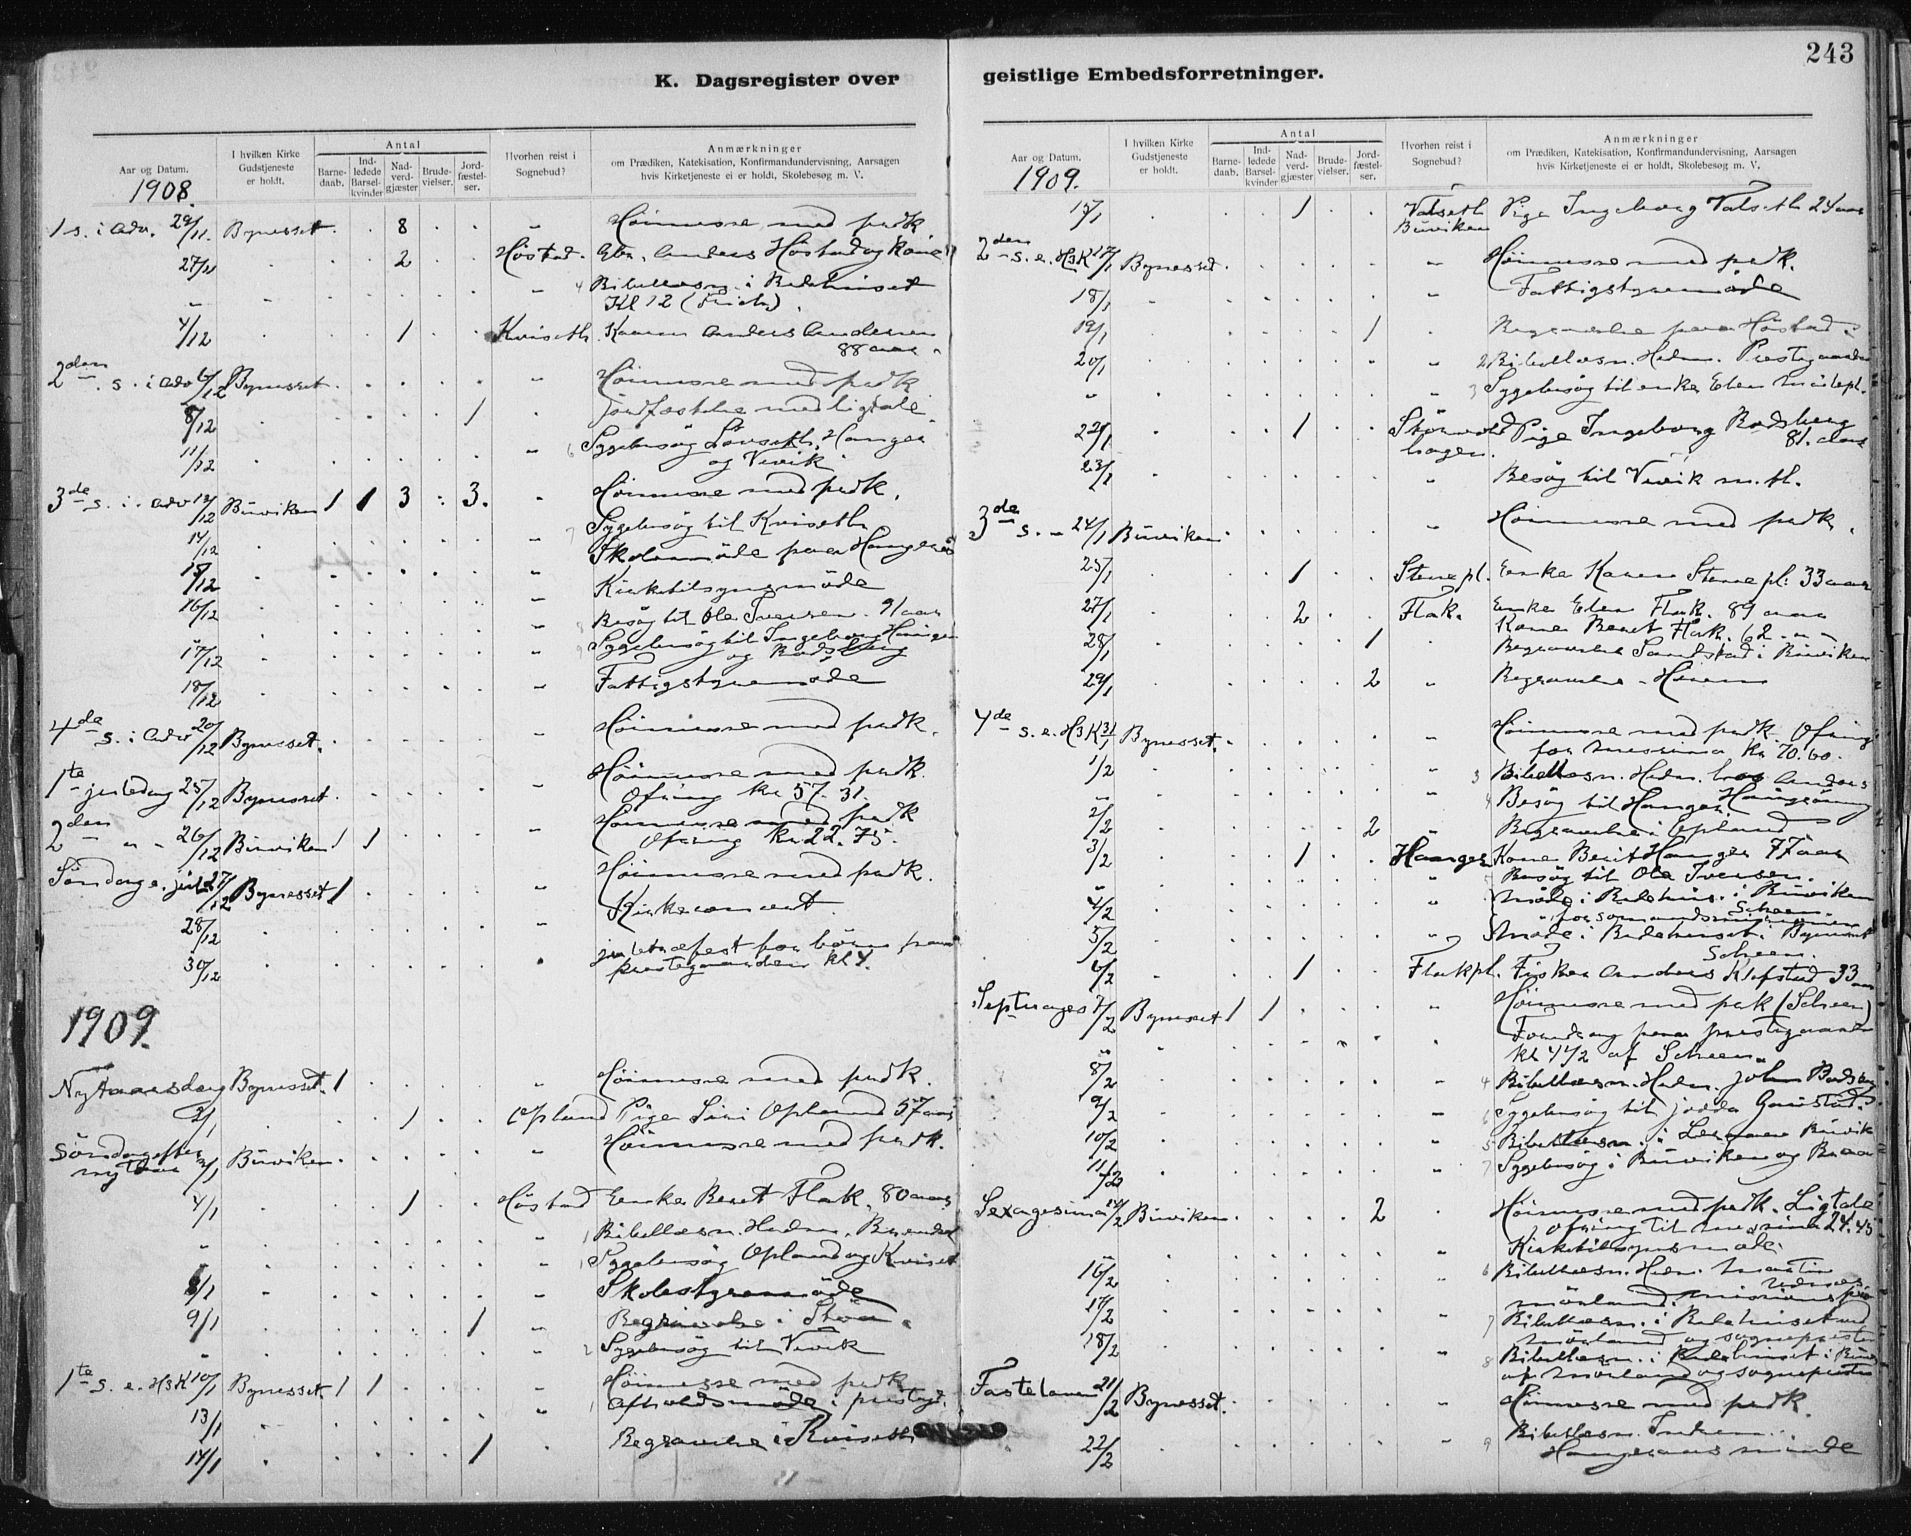 243
K. Dagsregister over geistlige Embedsforretninger.
Aar og Datum.
I hvilken Kirke Gudstjeneste er holdt.
Antal
Barne-daab.
Ind-ledede Barsel-kvinder
Nad-verd-gjæster
Brude-vielser.
Jord-fæstel-ser.
Hvorhen reist i Sognebud?
Anmærkninger
om Prædiken, Katekisation, Konfirmandundervisning, Aarsagen
hvis Kirketjeneste ei er holdt, Skolebesøg m. V.
1908.
1 s. i adv. 29/11. Bynesset. 8 „ Høimesse med prdk
27/11 2 Høstad. Anders Høstad og Kone
„ „ Bibellæsn. i Bedehuset
Kl 12
4/12 1 Kviseth. Anders Andersen
88 aar
2den s. i adv 6/12 Bynesset. „ Høimesse med prdk
8/12 1 Jordfæstelse med ligtale
11/12 „ 6 Sygebesøg Hanger
og Vivik
3de s. i adv 13/12 Buviken 1 1 3 : 3. Høimesse med prdk.
14/12 „ 7 Sygebesøg til Kviseth
15/12 „ Skolemøde paa
16/12 „ Kirketilsynsmøde
8 Besøg til Ole Iversen. 91 aar
17/12 9 Sygebesøg til Ingeborg Hanger
og Rodsberg
18/12 „ Fattigstyremøde
4de s. i adv 20/12 Bynesset. „ Høimesse med prdk.
1te juledag 25/12 Bynesset. „ Høimesse med prdk.
Ofring kr 57.31.
2den „ „ 26/12 Buviken 1 1 „ Høimesse med prdk
Ofring kr. 22.75.
Søndag e. jul 27/12 Bynesset 1 „ Høimesse med prdk.
28/12 „ Kirkeconcert.
30/12 juletræfest for børn paa
prestegaarden kl 4.
1909.
Nytaarsdag Bynesset. 1 „ Høimesse med prdk.
2/1 1 Opland Pige Siri Opland 57 aar
Søndag efter nytaar 3/1 Buviken. „ Høimesse med prdk.
4/1 1 Høstad Enke Beret Flak, 80 aar
„ „ 1 Bibellæsn. Hedm.
„ „ 1 Sygebesøg Opland og Kviset
8/1 „ Skolestyremøde
9/1 1 „ Begravelse i
„ 2 Sygebesøg til Vivik
1te s. e. H3K 10/1 Bynesset. 1 1 „ Høimesse med prdk
13/1 „ 1 Afholdsmøde i prestgd.
14/1 1 Begravelse i Kviseth
Aar og Datum.
I hvilken Kirke Gudstjeneste er holdt.
Antal
Barne-daab.
Ind-ledede Barsel-kvinder
Nad-verd-gjæster
Brude-vielser.
Jord-fæstel-ser.
Hvorhen reist i Sognebud?
Anmærkninger
om Prædiken, Katekisation, Konfirmandundervisning, Aarsagen
hvis Kirketjeneste ei er holdt, Skolebesøg m. V.
1909.
15/1 1 Valseth Buviken Pige Ingeborg Valseth 24 aar
2den s. e. H3K 17/1 Bynesset. „ Høimesse med prdk.
18/1 „ Fattigstyremøde
19/1 1 Begravelse paa Høstad
20/1 „ 2 Bibellæsn. Hedm. Prestegaarden
„ „ 3 Sygebesøg til enke Elen
22/1 1 Pige Ingeborg Rodsberg
81. aar
23/1 „ Besøg til Vivik m. fl.
3de s. „ 24/1 Buviken. „ Høimesse med prdk.
25/1 1 Stenepl. Enke Karen Stenepl: 33 aar
27/1 2 Flak. Enke Elen Flak. 89 aar
Kone Beret Flak. 62 „ „
28/1 1 Begravelse Sandstad i Buviken
29/1 2 „ Begravelse
4de s. e. H3K 31/1 Bynesset. „ Høimesse med prdk. Ofring
for missionen kr. 70.60.
1/2 „ 3 Bibellæsn. Hedm. hos Anders
„ „ 4 Besøg til Hanger
2/2 2 „ Begravelse i Opland
3/2 1 Hanger Kone Berit Hanger 77 aar
„ „ 5 Besøg til Ole Iversen.
4/2 „ Møde i Bedehus. i Buviken
Scheen
5/2 „ Møde i Bedehuset i Bynesset
Scheen.
6/2 1 Flakpl. Fisker Anders Klefstad 33 aar
Septuages 7/2 Bynesset 1 1 „ Høimesse med prdk (Scheen)
„ „ Foredrag paa prestegaarden
kl 4 1/2 af Scheen.
8/2 „ 4 Bibellæsn. Hedm. John Rodsberg
9/2 „ 6 Sygebesøg til
10/2 „ 5 Bibellæsn. i Buvik
11/2 „ 7 Sygebesøg i Buviken og
Sexagesima 14/2 Buviken. 2 Høimesse med prdk. Ligtale
Ofring til missionen 24.45
„ „ Kirketilsynsmøde.
16/2 „ 6 Bibellæsn. Hedm. Martin
17/2 „ 7 Bibellæsn. i Bedehuset ved
Mørland og sogneprest
18/2 „ 8 Bibellæsn. i Bedehuset i
af Mørland og sogneprest
Fastelavn 21/2 Bynesset. „ Høimesse med prdk.
22/2 9 Bibellæsn.